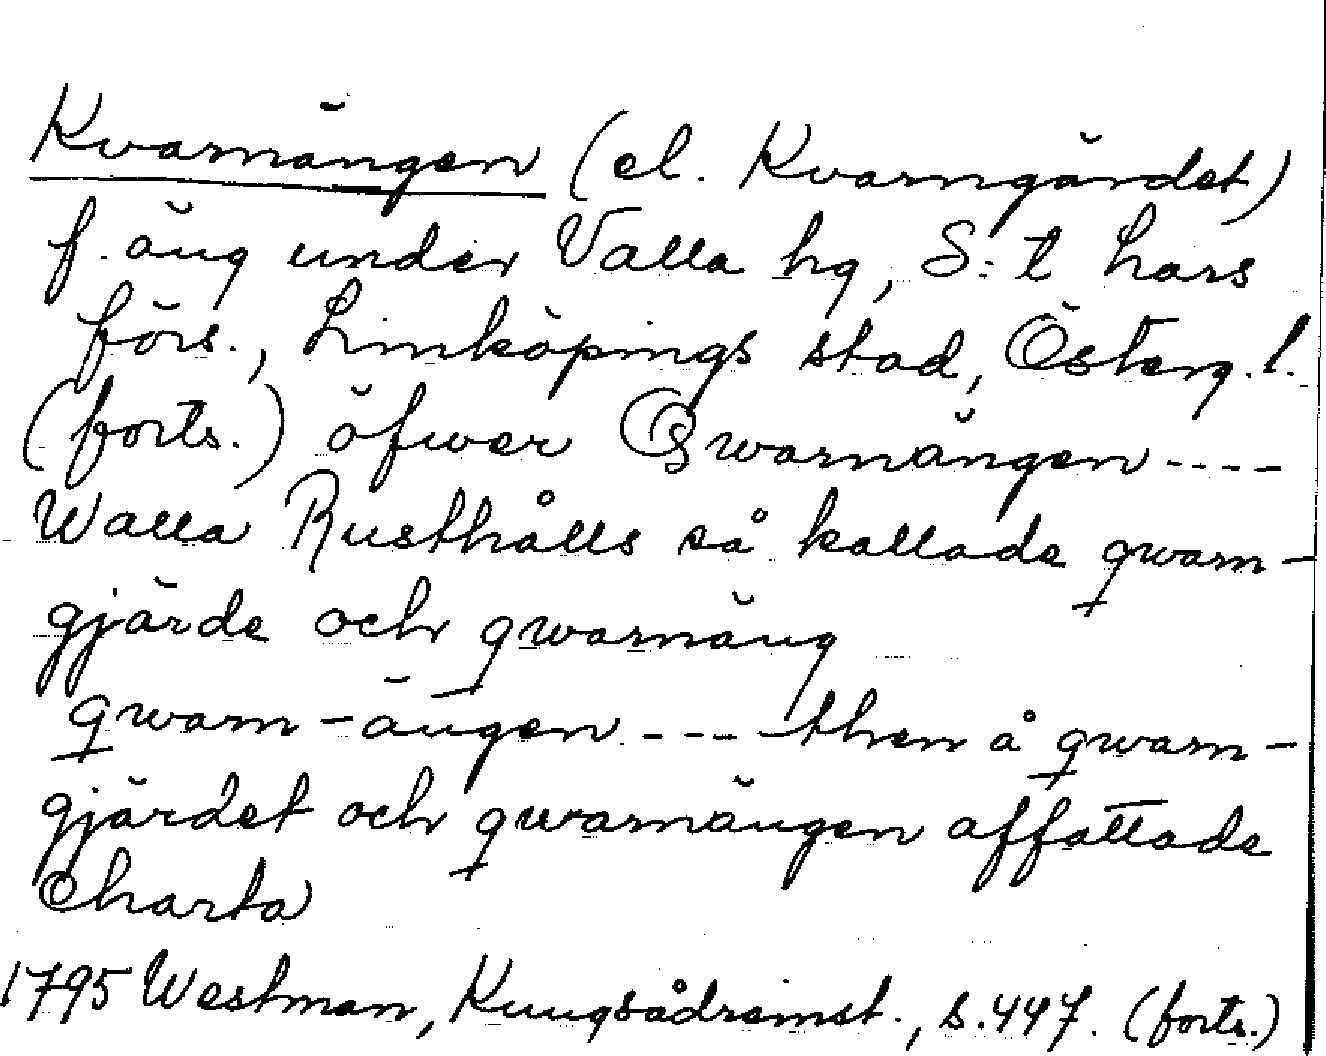 Kvarnängen (el. Kvarngärdet)
f. äng under Valla hg, S:t Lars
förs., Linköpings stad, Österg.l.
(forts.) öfwer Qwarnängen ----
Walla Rusthålls så kallade qwarn-
gjärde och qwarnäng
qwarn-ängen --- then å qwarn-
gjärdet och qwarnängen affattade
Charta
1795 Westman, Kungsådremst., s.447. (forts.)